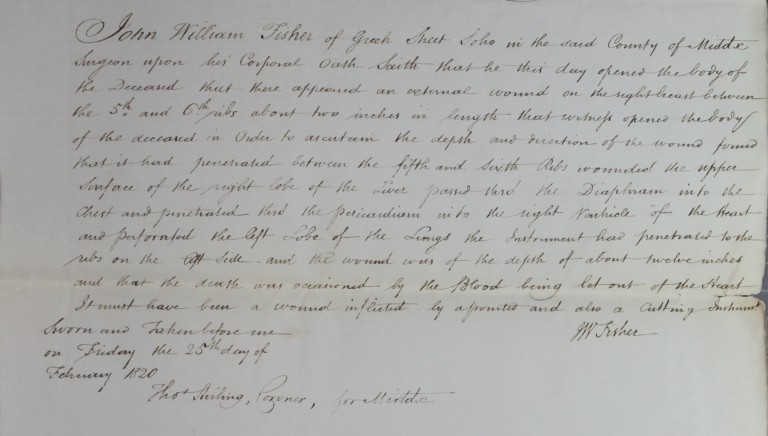 John William Fisher of Greek Street Soho in the said County of Middx
Surgeon upon his Corporal Oath Saith that he this day opened the body of
the Deceased that there appeared an external wound on the right breast between
the 5th and 6th ribs about two inches in length that witness opened the body
of the deceased in Order to ascertain the depth and direction of the wound found
that it had penetrated between the fifth and Sixth Ribs wounded the upper
Surface of the right lobe of the liver passed thro' the Diaphram into the
Chest and penetrated thro' the pericardium into the right Ventricle of the Heart
and perforated the left Lobe of the Lungs the Instrument had penetrated to the
ribs on the left Side and the wound was of the depth of about twelve inches
and that the death was occasioned by the Blood being let out of the Heart
It must have been a wound inflicted by a pointed and also a Cutting Instrument
JW Fisher
Sworn and Taken before me
on Friday the 25th day of
February 1820
Thos Stirling, Coroner, for Middx